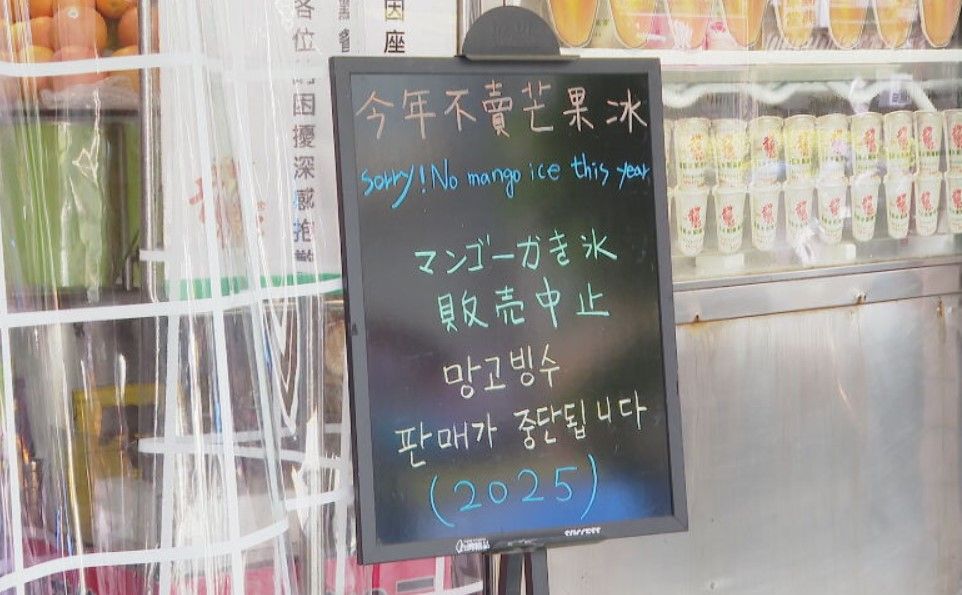 今年不賣芒果冰
sorry! No mango ice this year
マンゴーかき氷
販売中止
망고빙수
판매가 중단됩니다
(2025)
SUCCESS
各位
困擾深感抱歉
因座